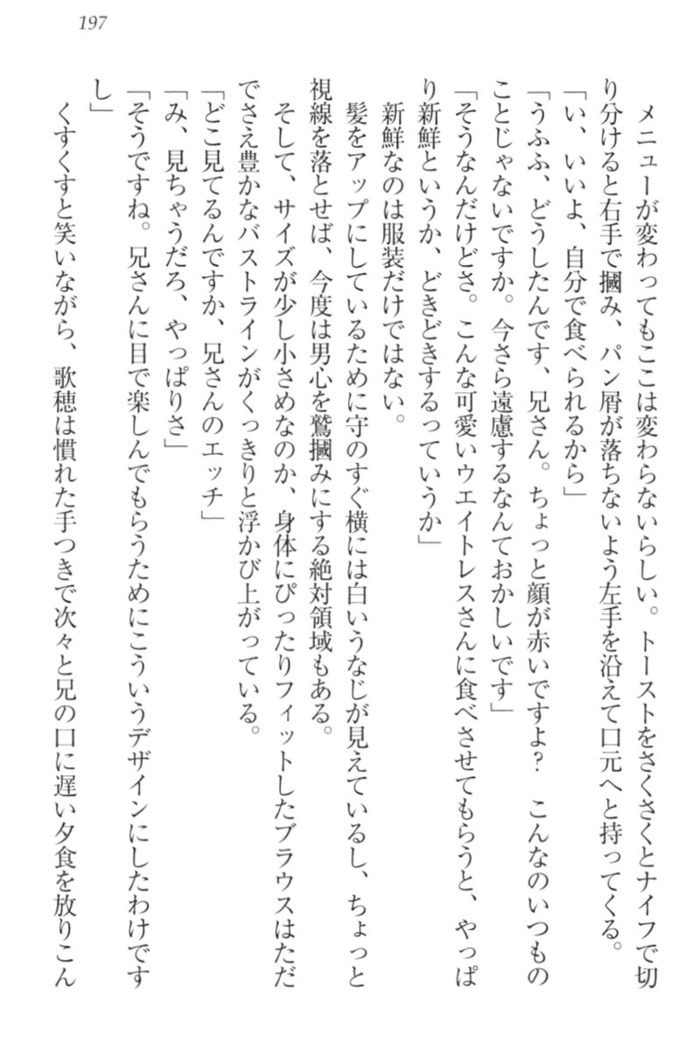 197
メニューが変わってもここは変わらないらしい。トーストをさくさくとナイフで切
り分けると右手で摑み、パン屑が落ちないよう左手を沿えて口元へと持ってくる。
「い、いいよ、自分で食べられるから」
「うふふ、どうしたんです、兄さん。ちょっと顔が赤いですよ？　こんなのいつもの
ことじゃないですか。今さら遠慮するなんておかしいです」
「そうなんだけどさ。こんな可愛いウエイトレスさんに食べさせてもらうと、やっぱ
り新鮮というか、どきどきするっていうか」
新鮮なのは服装だけではない。
髪をアップにしているために守のすぐ横には白いうなじが見えているし、ちょっと
視線を落とせば、今度は男心を鷲摑みにする絶対領域もある。
そして、サイズが少し小さめなのか、身体にぴったりフィットしたブラウスはただ
でさえ豊かなバストラインがくっきりと浮かび上がっている。
「どこ見てるんですか、兄さんのエッチ」
「み、見ちゃうだろ、やっぱりさ」
「そうですね。兄さんに目で楽しんでもらうためにこういうデザインにしたわけです
し」
くすくすと笑いながら、歌穂は慣れた手つきで次々と兄の口に遅い夕食を放りこん